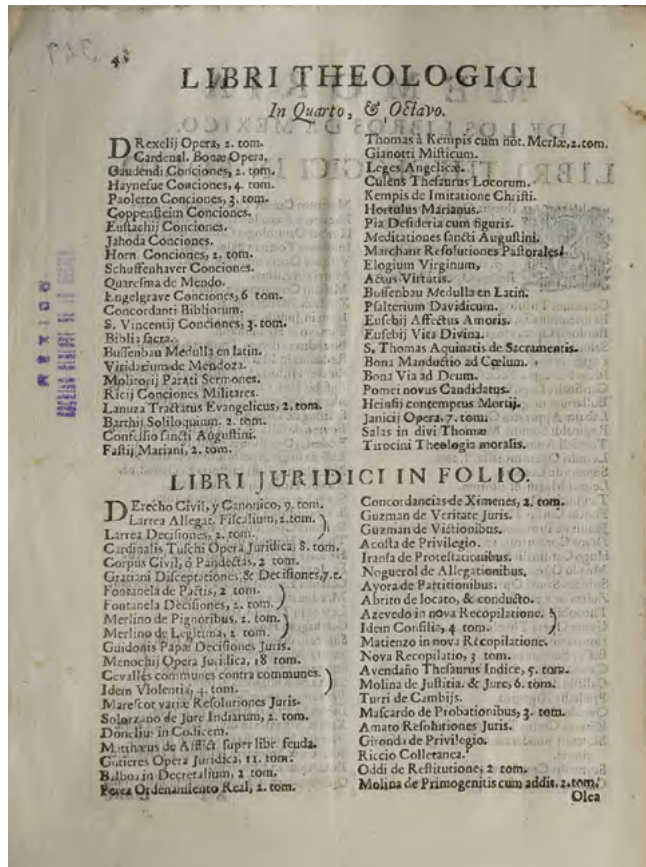 LIBRI THEOLOGICI
In Quarto, & Octavo.
DRexelij Opera, 2. tom.
Cardenal. Bonæ Opera.
Gaudendi Conciones, 2. tom.
Haynefue Conciones, 4. tom.
Paoletto Conciones, 3. tom.
Coppensteim Conciones.
Eustachij Conciones.
Jahoda Conciones.
Horn. Conciones, 2. tom.
Schuffenhaver Conciones.
Quaresma de Mendo.
Engelgrave Conciones, 6 tom.
Concordanti Bibliorum.
S. Vincentij Conciones, 3. tom.
Biblia sacra.
Bussenbau Medulla en latin.
Viridarium de Mendoza.
Molitorij Parati Sermones.
Ricij Conciones Militares.
Lanuza Tractatus Evangelicus, 2. tom.
Barthij Soliloquium. 2. tom.
Confessio sancti Augustini.
Fastij Mariani, 2. tom.
Thomas à Kempis cum not. Merlæ, 2. tom.
Gianotti Misticum.
Leges Angelicæ.
Culens Thesaurus Locorum.
Kempis de Imitatione Christi.
Hortulus Marianus.
Pia Desideria cum figuris.
Meditationes sancti Augustini.
Marchant Resolutiones Pastorales.
Elogium Virginum,
Actus Virtutis.
Bussenbau Medulla en Latin.
Psalterium Davidicum.
Eusebij Affectus Amoris.
Eusebij Vita Divina.
S. Thomas Aquinatis de Sacramentis.
Bona Manductio ad Cœlum.
Bona Via ad Deum.
Pomei novus Candidatus.
Heinsij contemptus Mortij.
Janicij Opera, 7. tom.
Salas in divi Thomæ
Tirocini Theologia moralis.
LIBRI JURIDICI IN FOLIO.
DErecho Civil, y Canonico, 9. tom.
Larrea Allegat. Fiscalium, 2. tom.
Larrea Decisiones, 2. tom.
Cardinalis Tuschi Opera Juridica, 8. tom.
Corpus Civil, ó Pandectas, 2 tom.
Gratiani Disceptationes, & Decisiones, 7. t.
Fontanela de Pactis, 2 tom.
Fontanela Decisiones, 2. tom.
Merlino de Pignoribus, 2. tom.
Merlino de Legitima, 2. tom.
Guidonis Papæ Decisiones Juris.
Menochij Opera Juridica, 18 tom.
Cevallos communes contra communes.
Idem Violentia, 4. tom.
Marescot variæ Resolutiones Juris.
Solorzano de Jure Indiarum, 2. tom.
Donelius in Codicem.
Mattheus de Afflict super libr. feuda.
Gutieres Opera Juridica, 11. tom.
Balboa in Decretalium, 2 tom.
Perea Ordenamiento Real, 2. tom.
Concordancias de Ximenes, 2. tom.
Guzman de Veritate Juris.
Guzman de Victionibus.
Acosta de Privilegio.
Iransa de Protestationibus.
Noguerol de Allegationibus.
Ayora de Partitionibus.
Abrito de locato, & conducto.
Azevedo in nova Recopilatione.
Idem Consilia, 4 tom.
Matienzo in nova Recopilatione.
Nova Recopilatio, 3 tom.
Avendaño Thesaurus Indice, 5. tom.
Molina de Justitia. & Jure, 6. tom.
Turri de Cambijs.
Mascardo de Probationibus, 3. tom.
Amato Resolutiones Juris.
Girondi de Privilegio.
Riccio Colletanea.
Oddi de Restitutione, 2 tom.
Molina de Primogenitis cum addit. 2. tom.
Olea
MEXICO